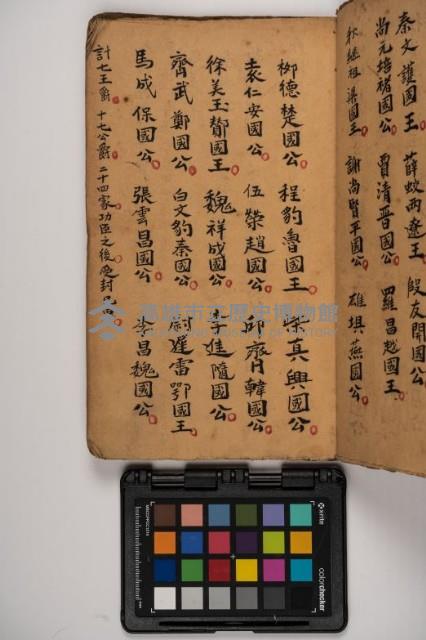 秦文護國王 薛蛟兩遼王 殷友開國公
尚元培褚國公 賈清晋國公 羅昌越國王
秋继祖梁國王 謝尚賢平國公 雄埧燕國公
柳德楚國公 程豹魯國王 真興國公
袁仁安國公 伍榮趙國公 邱 韓國公
徐美玉 國王 魏祥成國公 李進隨國公
齊武鄭國公 白文豹秦國公 尉遲雷鄂國王
馬成保國公 張雲昌國公 李昌魏國公
計七王爵 十七公爵 二十四家功臣之後 封
高雄市立歷史博物館
x-rite
colorchecker